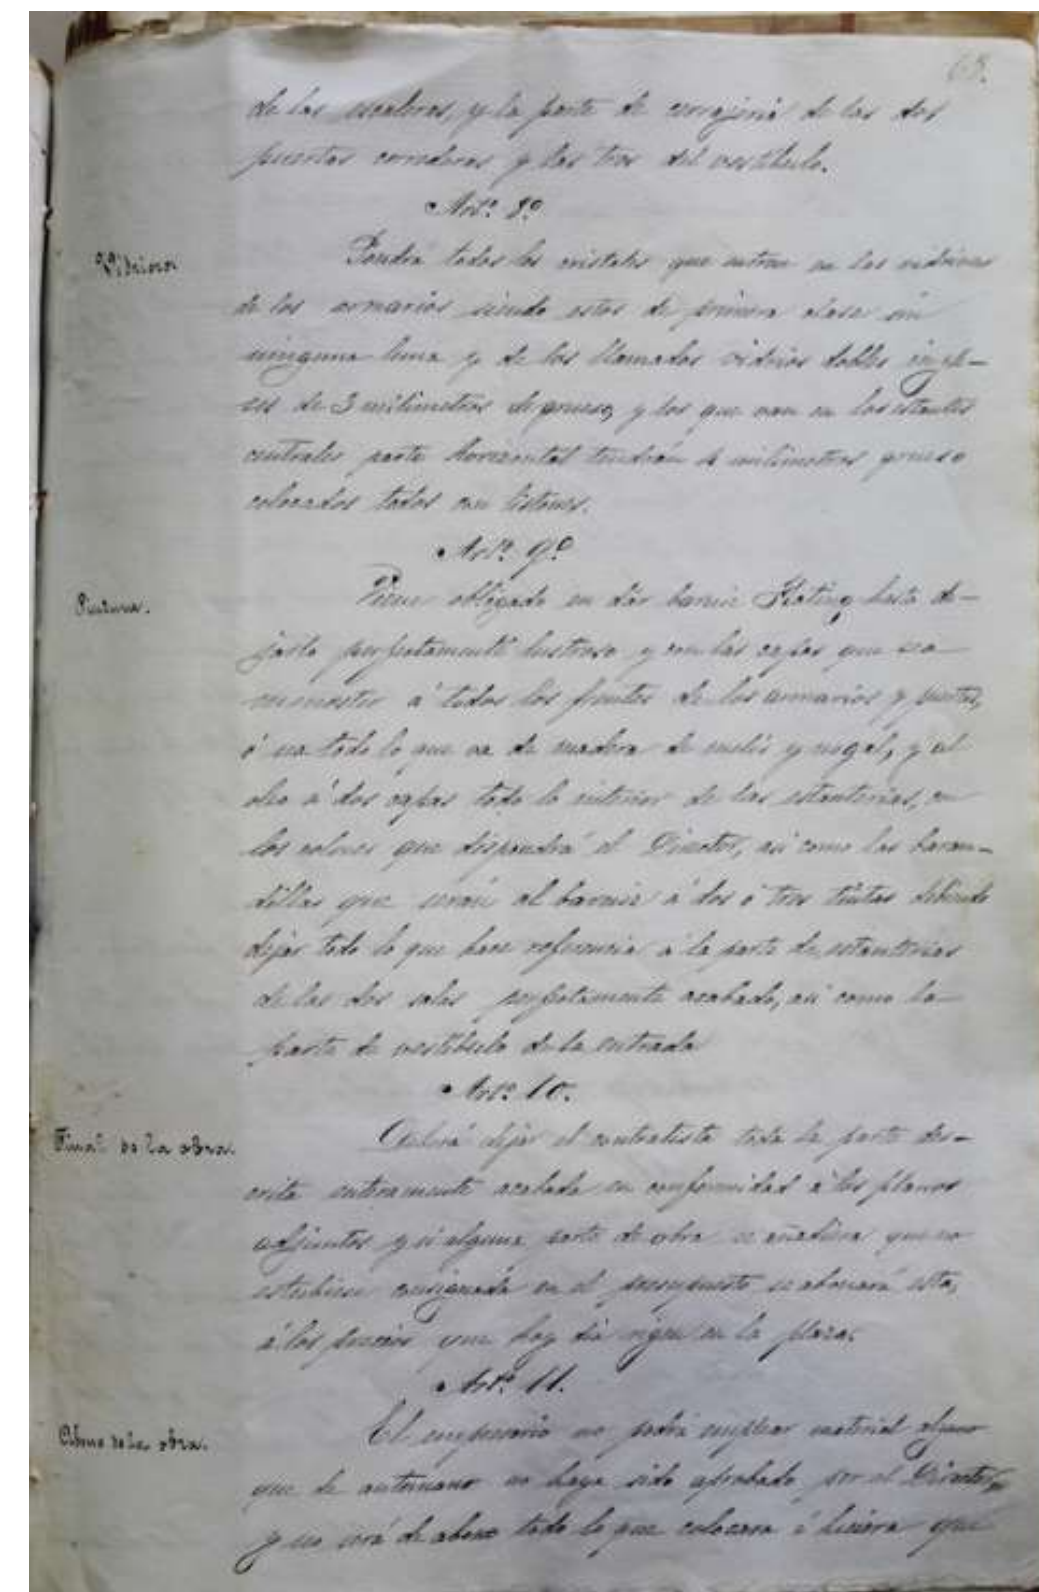 68.
de las escaleras, y la parte de cerrajeria de las dos
puertas correderas y las tres del vestíbulo.
Artº. 8º
Vidriero
Pondrá todos los cristales que entran en las vidrieras
de los armarios siendo estos de primera clase sin
ninguna luna y de los llamados vidrios dobles ingle-
ses de 3 milimetros de grueso, y los que van en los estantes
centrales parte horizontal tendrán 4 milimetros grueso
colocados todos con listones.
Artº. 9º
Pintura.
Viene obligado en dár barniz Flating hasta de-
jarlo perfectamente lustroso y con las capas que sea
menester á todos los frentes de los armarios y puertas,
ó sea todo lo que va de madera de melis y nogal, y al
oleo á dos capas todo lo interior de las estanterias, en
los colores que dispondrá el Director, asi como las baran-
dillas que serán al barniz á dos ó tres tintas debiendo
dejar todo lo que hace referencia á la parte de estanterias
de las dos salas perfectamente acabado, asi como la
parte de vestíbulo de la entrada
Artº. 10.
Final de la obra.
Deberá dejar el contratista toda la parte des-
crita enteramente acabada en conformidad á los planos
adjuntos y si alguna parte de obra se añadiera que no
estubiese consignada en el presupuesto se abonará esta,
á los precios que hoy dia rigen en la plaza.
Artº. 11.
Abono de la obra.
El empresario no podrá emplear material alguno
que de antemano no haya sido aprobado por el Director,
y no será de abono todo lo que colocara ó hiciera que